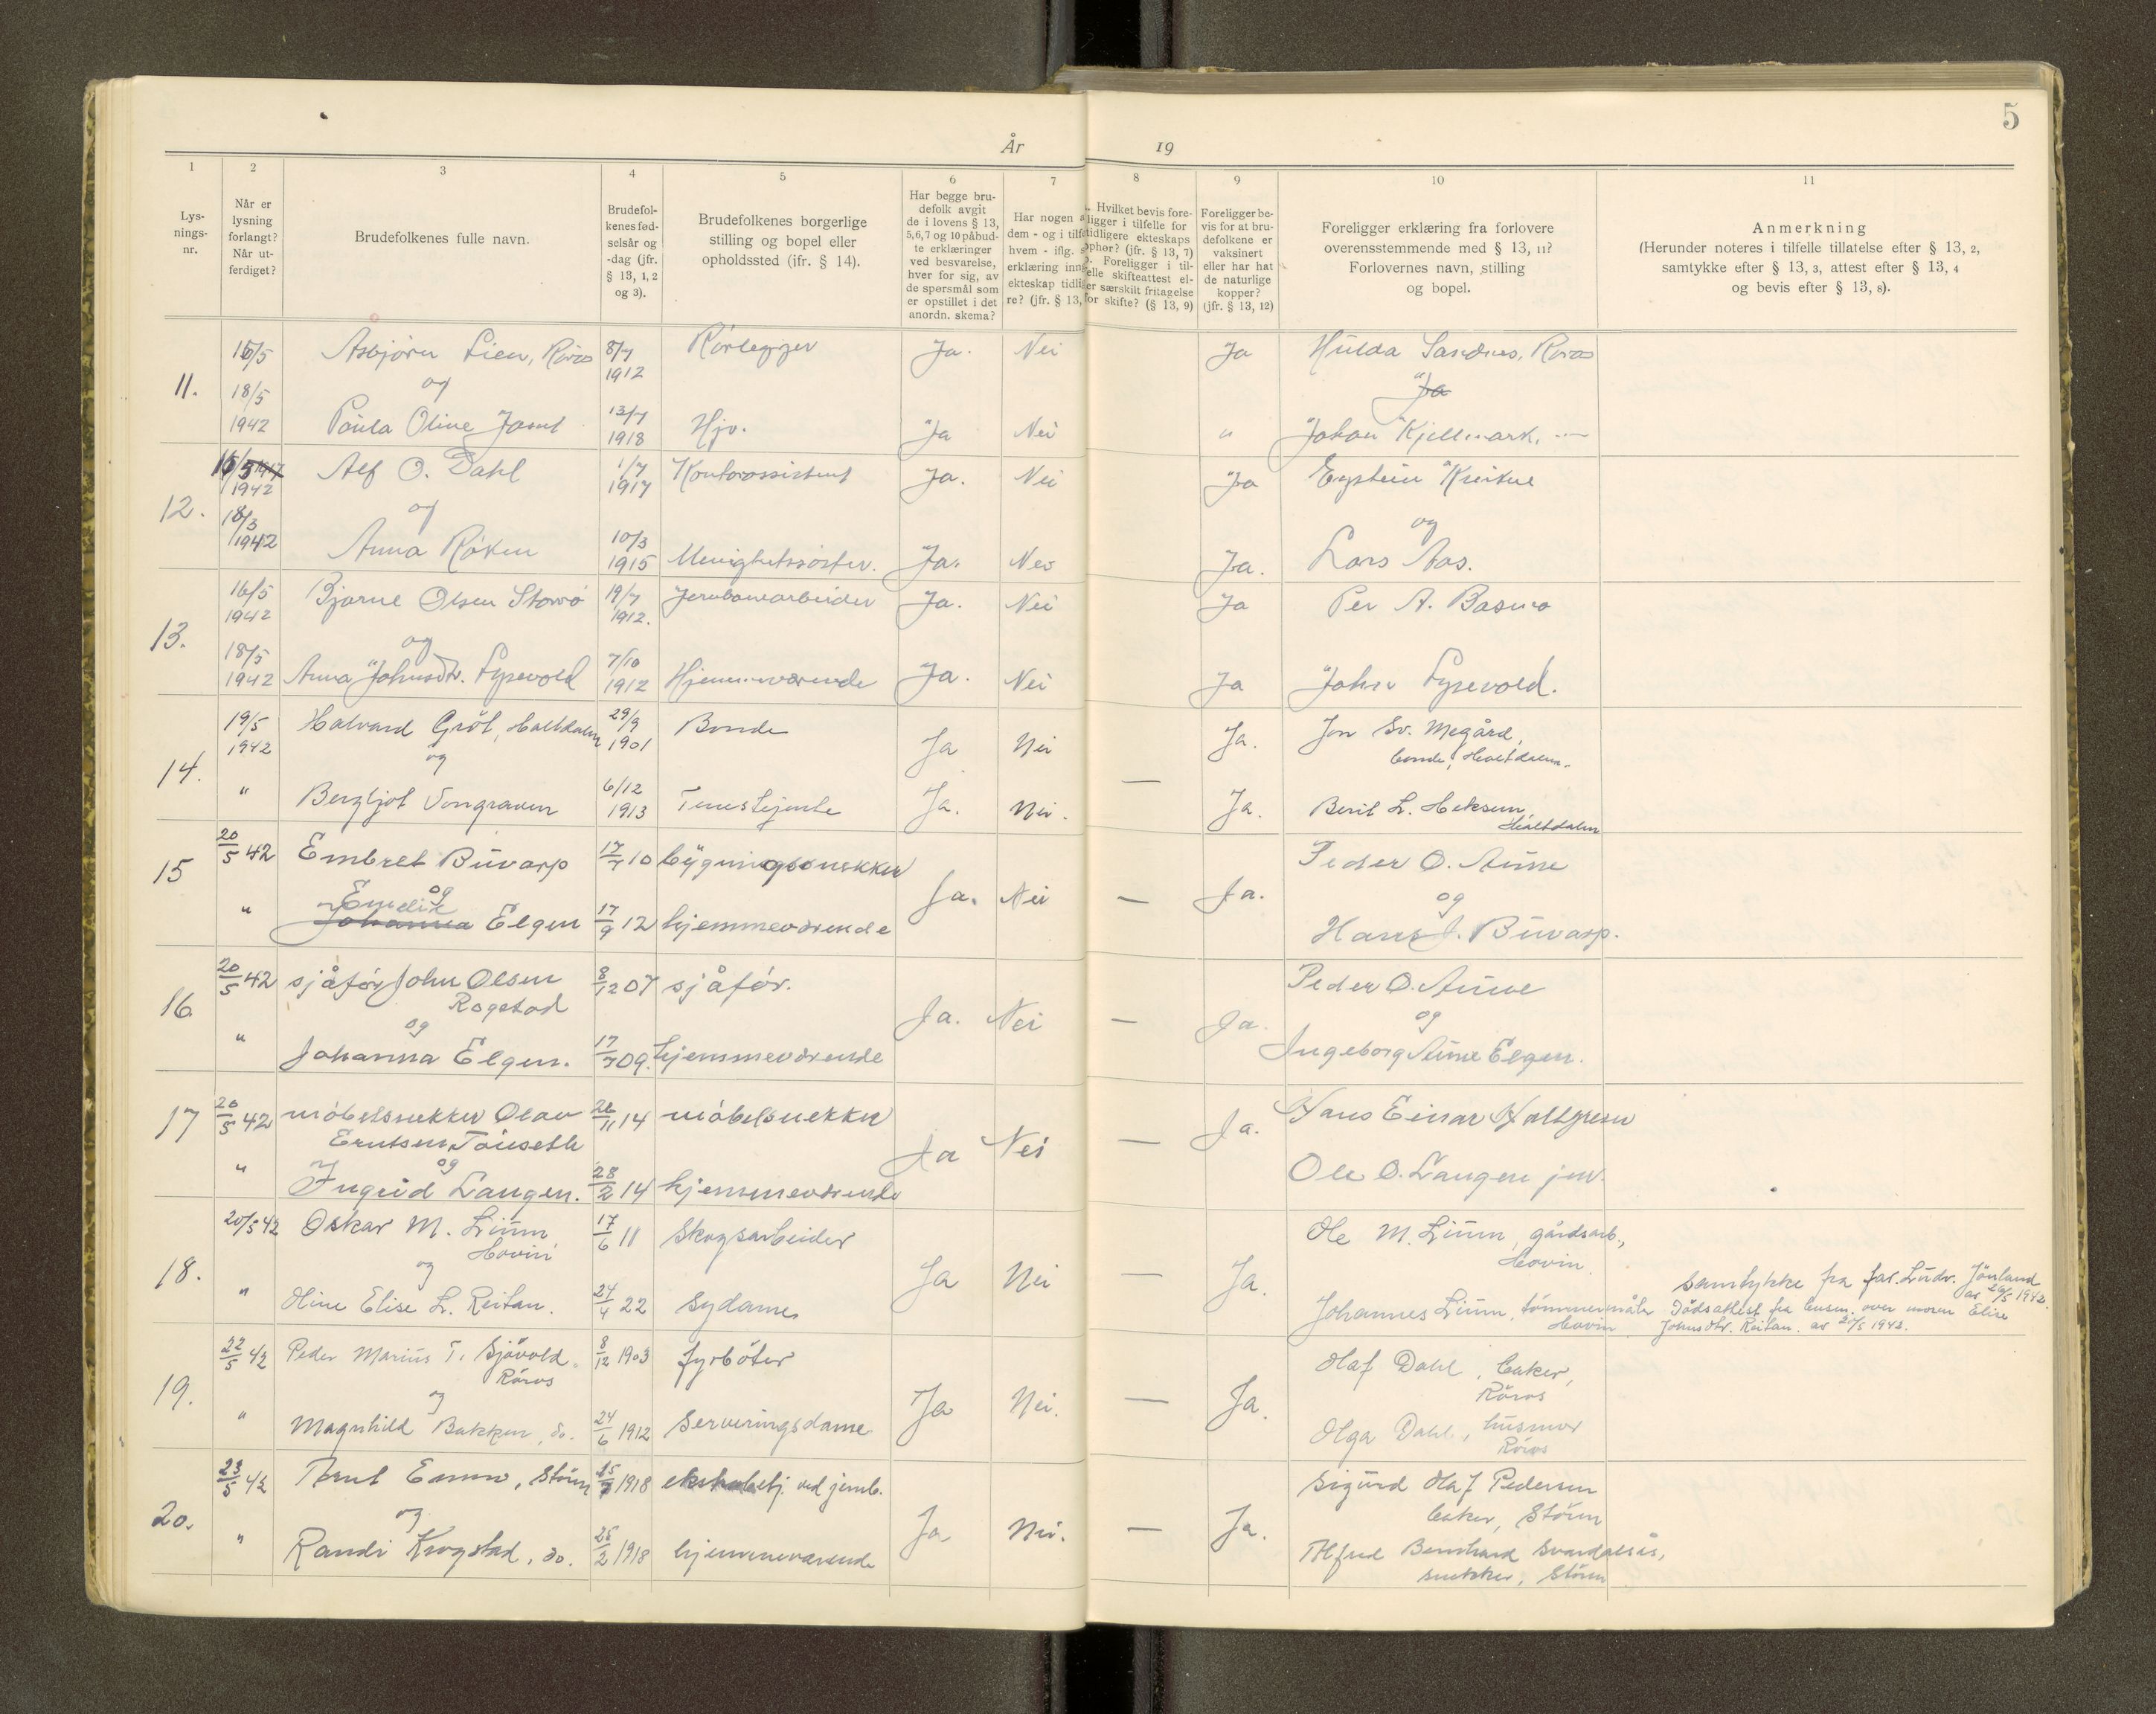 5
År 19
1 2 3 4 5 6 7 8 9 10 11
Lys-
nings-
nr.
Når er
lysning
forlangt?
Når ut-
ferdiget?
Brudefolkenes fulle navn.
Brudefol-
kenes fød-
selsår og
-dag (jfr.
§ 13, 1, 2
og 3).
Brudefolkenes borgerlige
stilling og bopel eller
opholdssted (jfr. § 14).
Har begge bru-
defolk avgit
de i lovens § 13,
5,6,7 og 10 påbud-
te erklæringer
ved besvarelse,
hver for sig, av
de spørsmål som
er opstillet i det
anordn. skema?
Har nogen a
dem - og i tilfe
hvem - iflg.
erklæring inng
ekteskap tidli
re? (jfr. § 13,
Hvilket bevis fore-
ligger i tilfelle for
tidligere ekteskaps
ophør? (jfr. § 13, 7)
Foreligger i til-
elle skifteattest el-
er særskilt fritagelse
for skifte? (§ 13, 9)
Foreligger be-
vis for at bru-
defolkene er
vaksinert
eller har hat
de naturlige
kopper?
(jfr. § 13, 12)
Foreligger erklæring fra forlovere
overensstemmende med § 13, 11?
Forlovernes navn, stilling
og bopel.
Anmerkning
(Herunder noteres i tilfelle tillatelse efter § 13, 2,
samtykke efter § 13, 3, attest efter § 13, 4
og bevis efter § 13, 8).
11. 16/5 Asbjørn Lien, Røros 8/7 1912 Rørlegger Ja. Nei Ja Hulda Sandnes, Røros
18/5 1942 og Ja
Paula Oline Jamt 13/7 1918 Hjv. Ja Nei " Johan Kjellmark, —
12. 1942 Alf O. Dahl 1/7 1917 Kontorassistent Ja. Nei Ja Eystein Kvikne
18/3 1942 og og
Anna Røken 10/3 1915 Menighetssøster. Ja. Nei Ja. Lars Aas.
13. 16/5 1942 Bjarne Olsen Storrø 19/7 1912. Jernbanearbeider Ja. Nei Ja Per A. Basmo
og
18/5 1942 Anna Johnsdtr. Lysevold 7/10 1912 Hjemmeværende Ja. Nei Ja John Lysevold.
14. 19/5 1942 Halvard Gröt, Haltdalen 29/9 1901 Bonde Ja Nei Ja. Jon Sv. Megård,
og bonde, Haltdalen.
" Bergljot Vongraven 6/12 1913 Tenestejente Ja. Nei. — Ja. Berit L. Heksem
Haltdalen
15 20/5 42 Embret Buvarp 17/7 10 bygningssnekker Peder O. Aune
og Ja. Nei — Ja. og
" Emelie Johanna Elgen 17/9 12 hjemmeværende Hans J. Buvarp.
16. 20/5 42 sjåfør John Olsen 8/12 07 sjåfør. Peder O. Aune
Rogstad
og Ja. Nei — Ja. og
" Johanna Elgen. 17/7 09. hjemmeværende Ingeborg Aune Elgen.
17 20/5 42 møbelsnekker Olav 26/11 14 møbelsnekker Hans Einar Hallgren
Erntsen Tøuseth
og Ja Nei — Ja.
" Ingrid Langen. 28/2 14 hjemmeværende Ole O. Langen jun.
18. 20/5 42 Oskar M. Lium 17/6 11 Skogsarbeider Ole M. Lium, gårdsarb.,
Hovin Hovin
og Ja Nei — Ja. samtykke fra far. Ludv. Jönland
av 20/5 1942.
" Oline Elise L. Reitan. 24/4 22 Sydame Johannes Lium, tömmermåler Dødsattest fra lensm. over moren Elise
Hovin Johnsdtr. Reitan. av 20/5 1942.
19. 22/5 42 Peder Marius T. Sjövold 8/12 1903 fyrböter Olaf Dahl, baker,
Röros Röros
og Ja Nei. — Ja.
" Magnhild Bakken, do. 24/6 1912 Serveringsdame Olga Dahl, husmor
Röros
20. 23/5 42 Arnt Enmo, Stören 1918 ved jernb. Sigurd Olaf Pedersen
og baker, Stören
Ja. Nei. — Ja.
" Randi Krogstad, do. 25/2 1918 hjemmeværende Alfred Bernhard Svardalsås,
snekker, Stören